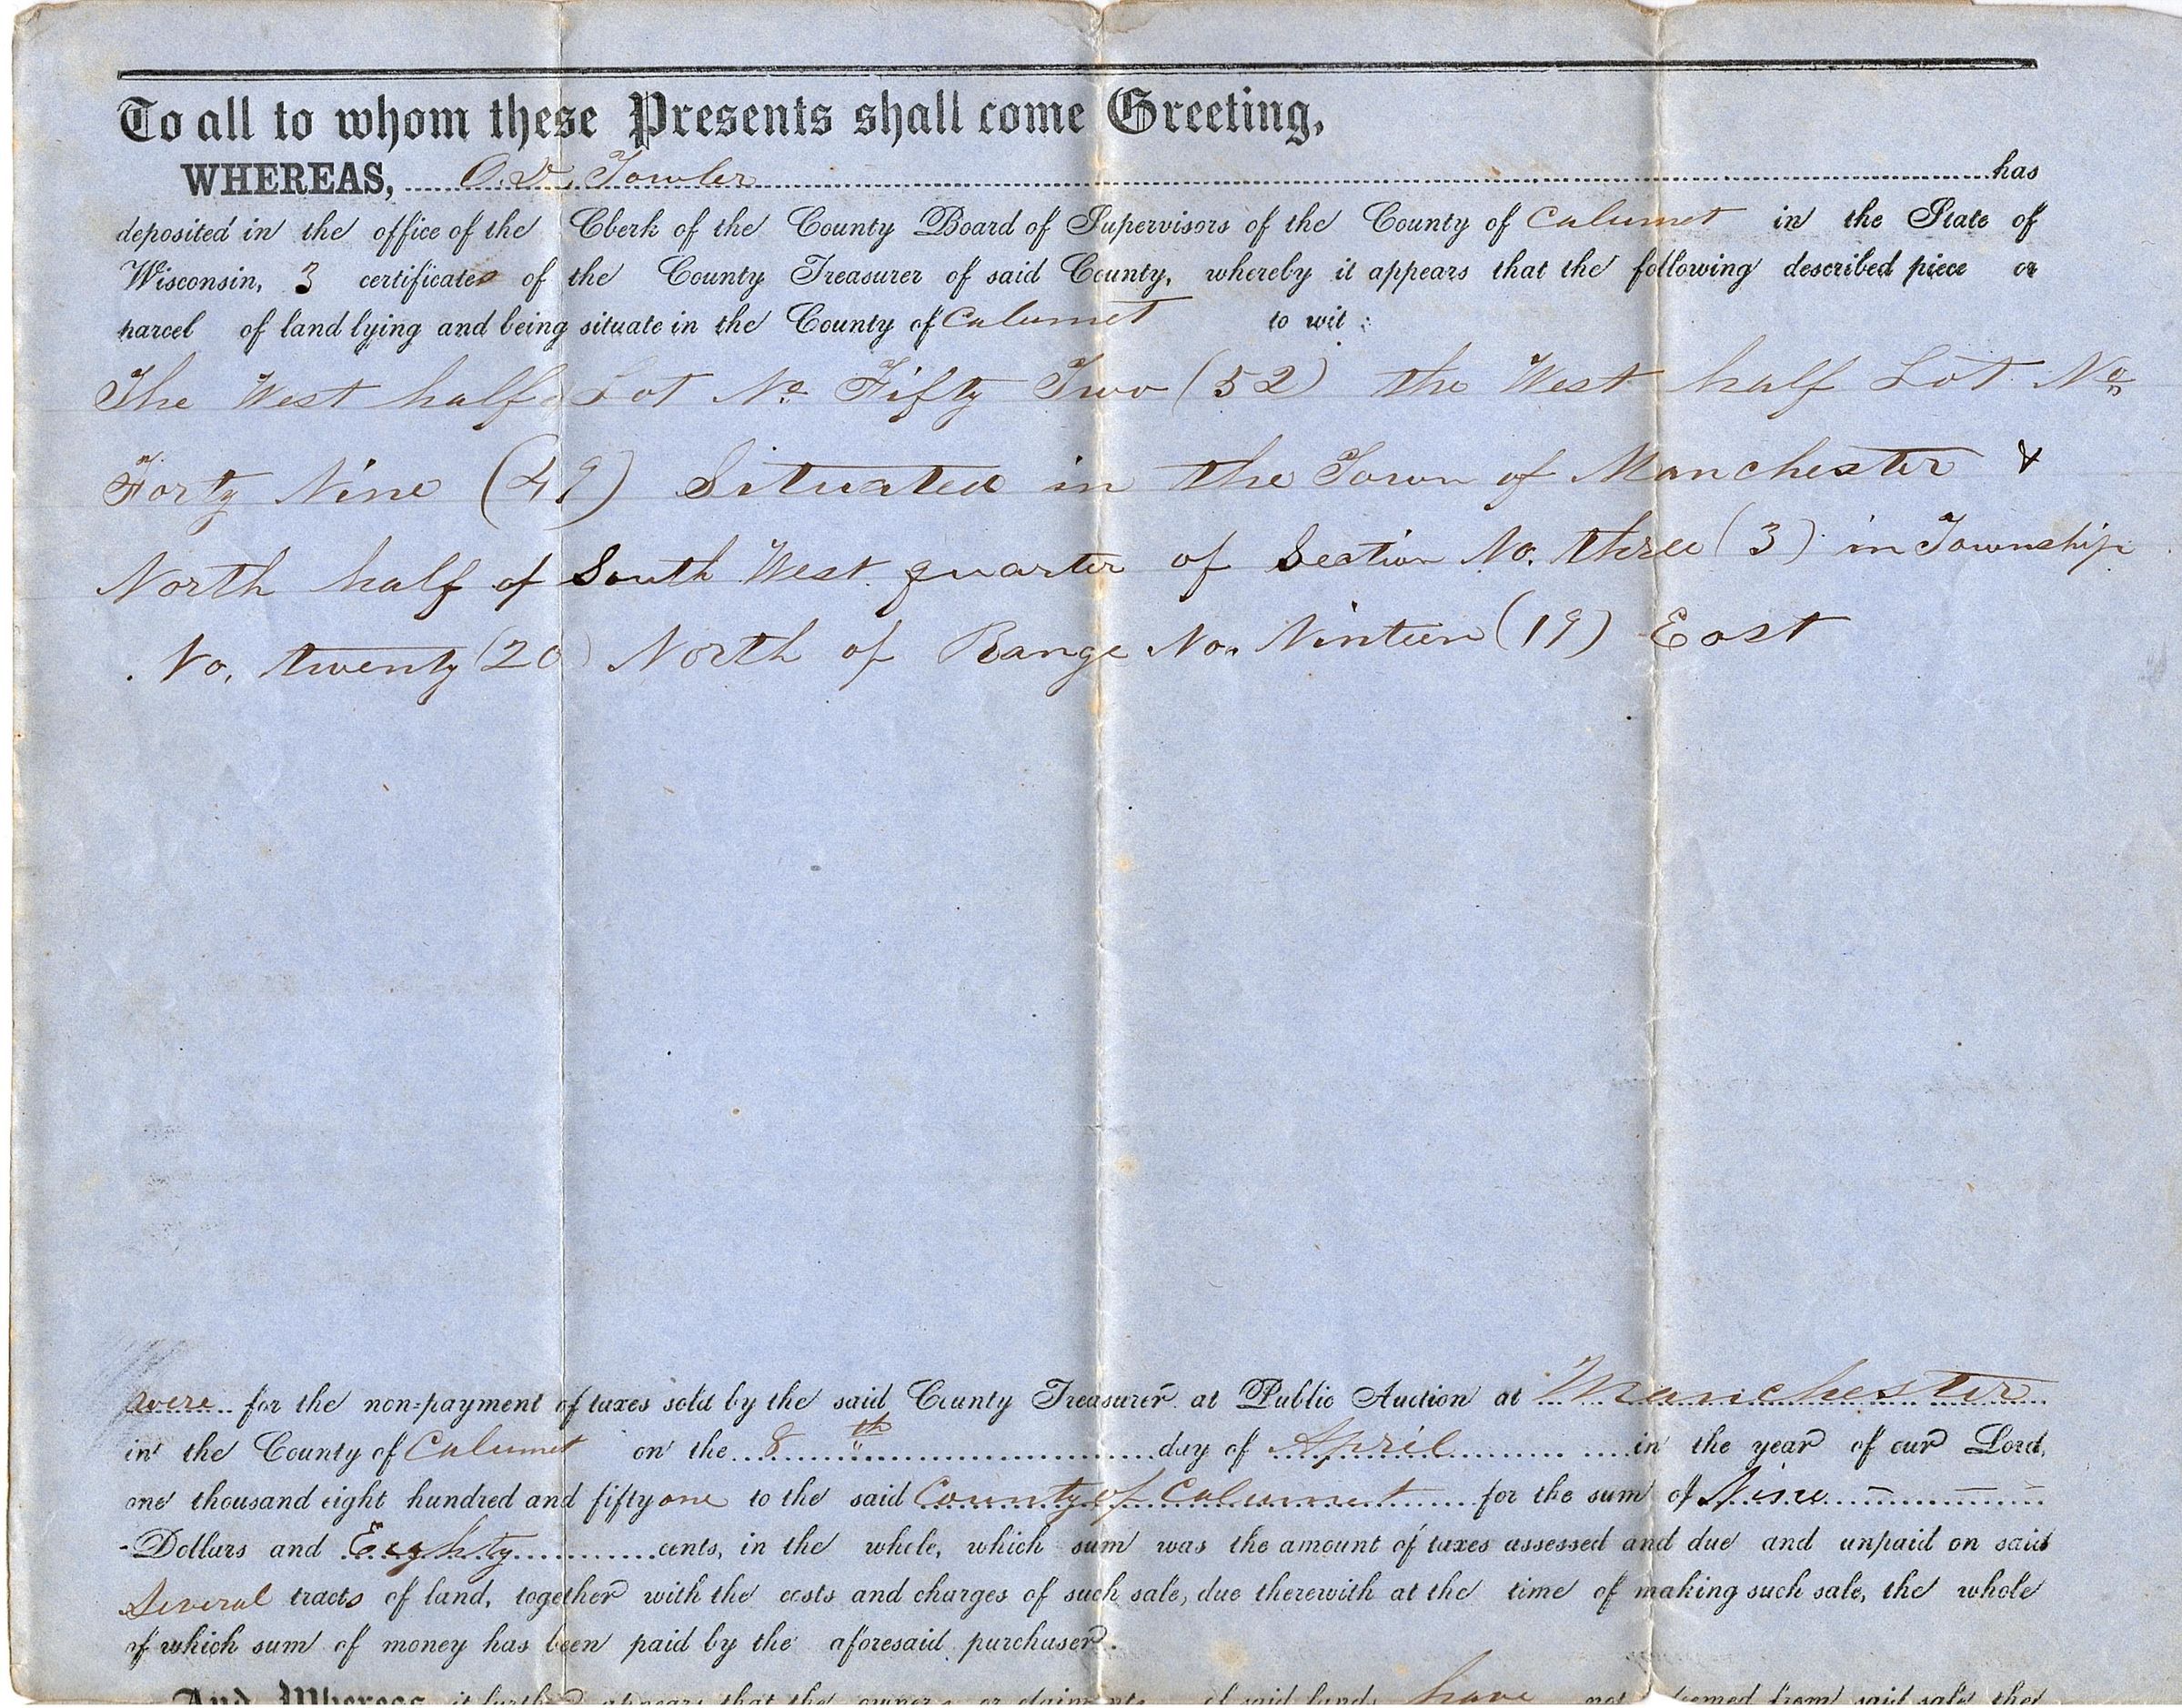 To all to whom these Presents shall come Greeting,
WHEREAS, O. D. Fowler has
deposited in the office of the Clerk of the County Board of Supervisors of the County of Calumet in the State of
Wisconsin, 3 certificates of the County Treasurer of said County, whereby it appears that the following described piece or
parcel of land lying and being situate in the County of Calumet to wit:
The West half Lot No Fifty Two (52) the West half Lot No
Forty Nine (49) Situated in the Town of Manchester &
North half of South West quarter of Section No. three (3) in Township
No. twenty (20) North of Range No. Ninteen (19) East
were for the non-payment of taxes sold by the said County Treasurer at Public Auction at Manchester
in the County of Calumet on the 8th day of April in the year of our Lord,
one thousand eight hundred and fifty one to the said County of Calumet for the sum of Nine
Dollars and Eighty cents, in the whole, which sum was the amount of taxes assessed and due and unpaid on said
Several tracts of land, together with the costs and charges of such sale, due therewith at the time of making such sale, the whole
of which sum of money has been paid by the aforesaid purchaser.
And Whereas, it further appears that the owners or claimants of said lands have not redeemed from said sale the